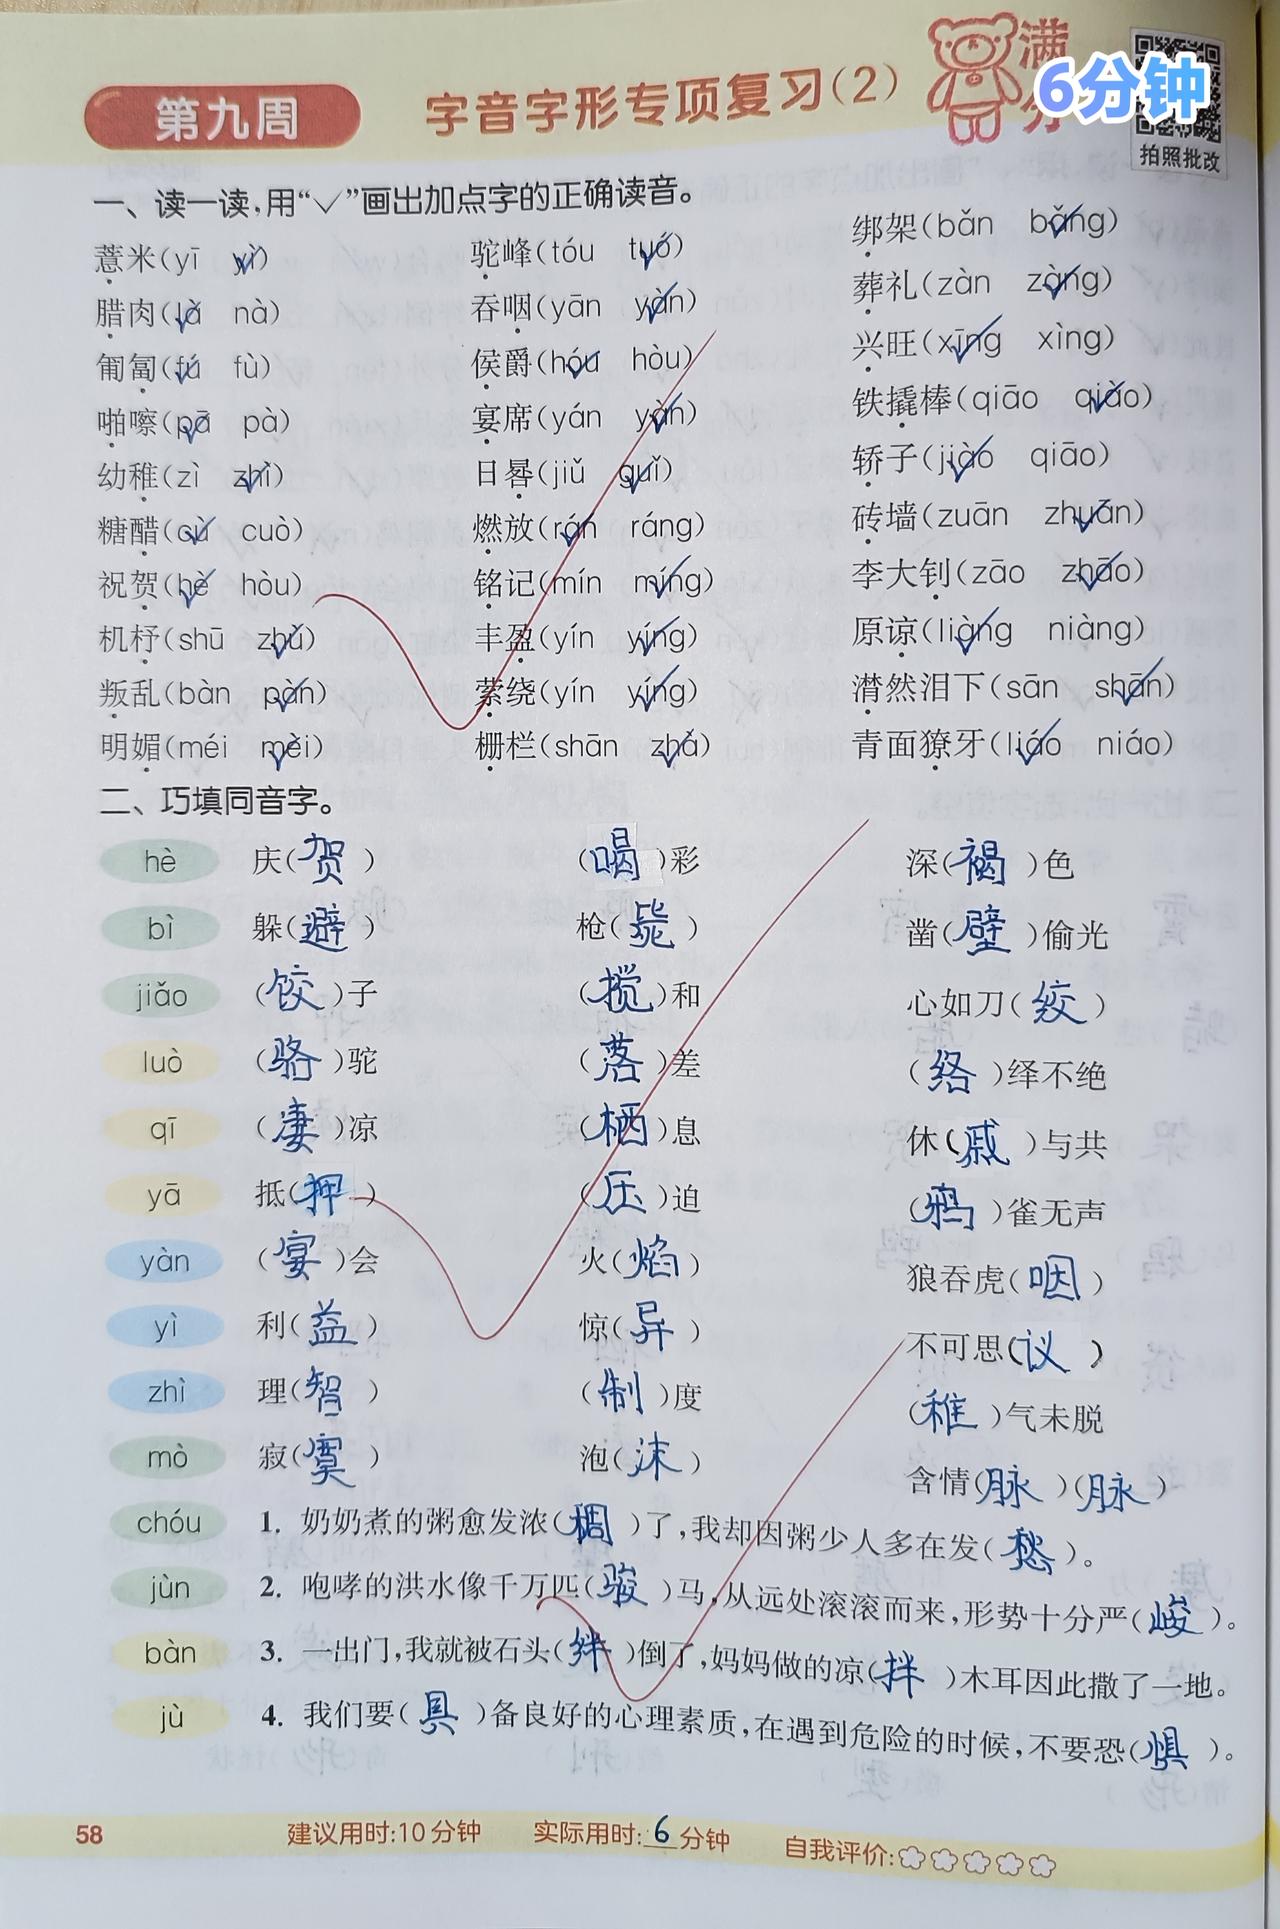 第九周
字音字形专项复习(2)
满分
6分钟
拍照批改
一、读一读,用“✓”画出加点字的正确读音。
薏米(yī yì) 驼峰(tóu tuó) 绑架(bǎn bǎng)
腊肉(là nà) 吞咽(yān yàn) 葬礼(zàn zàng)
匍匐(fú fù) 侯爵(hóu hòu) 兴旺(xīng xìng)
啪嚓(pā pà) 宴席(yán yàn) 铁撬棒(qiāo qiào)
幼稚(zì zhì) 日晷(jiǔ guǐ) 轿子(jiào qiāo)
糖醋(cù cuò) 燃放(rán ráng) 砖墙(zuān zhuān)
祝贺(hè hòu) 铭记(mín míng) 李大钊(zāo zhāo)
机杼(shū zhù) 丰盈(yín yíng) 原谅(liàng niàng)
叛乱(bàn pàn) 萦绕(yín yíng) 潸然泪下(sān shān)
明媚(méi mèi) 栅栏(shān zhà) 青面獠牙(liáo niáo)
二、巧填同音字。
hè 庆(贺) (喝)彩 深(褐)色
bì 躲(避) 枪(毙) 凿(壁)偷光
jiǎo (饺)子 (搅)和 心如刀(绞)
luò (骆)驼 (落)差 (络)绎不绝
qī (凄)凉 (栖)息 休(戚)与共
yā 抵(押) (压)迫 (鸦)雀无声
yàn (宴)会 火(焰) 狼吞虎(咽)
yì 利(益) 惊(异) 不可思(议)
zhì 理(智) (制)度 (稚)气未脱
mò 寂(寞) 泡(沫) 含情(脉)(脉)
chóu 1. 奶奶煮的粥愈发浓(稠)了,我却因粥少人多在发(愁)。
jùn 2. 咆哮的洪水像千万匹(骏)马,从远处滚滚而来,形势十分严(峻)。
bàn 3. 一出门,我就被石头(绊)倒了,妈妈做的凉(拌)木耳因此撒了一地。
jù 4. 我们要(具)备良好的心理素质,在遇到危险的时候,不要恐(惧)。
58 建议用时:10分钟 实际用时:6分钟 自我评价: